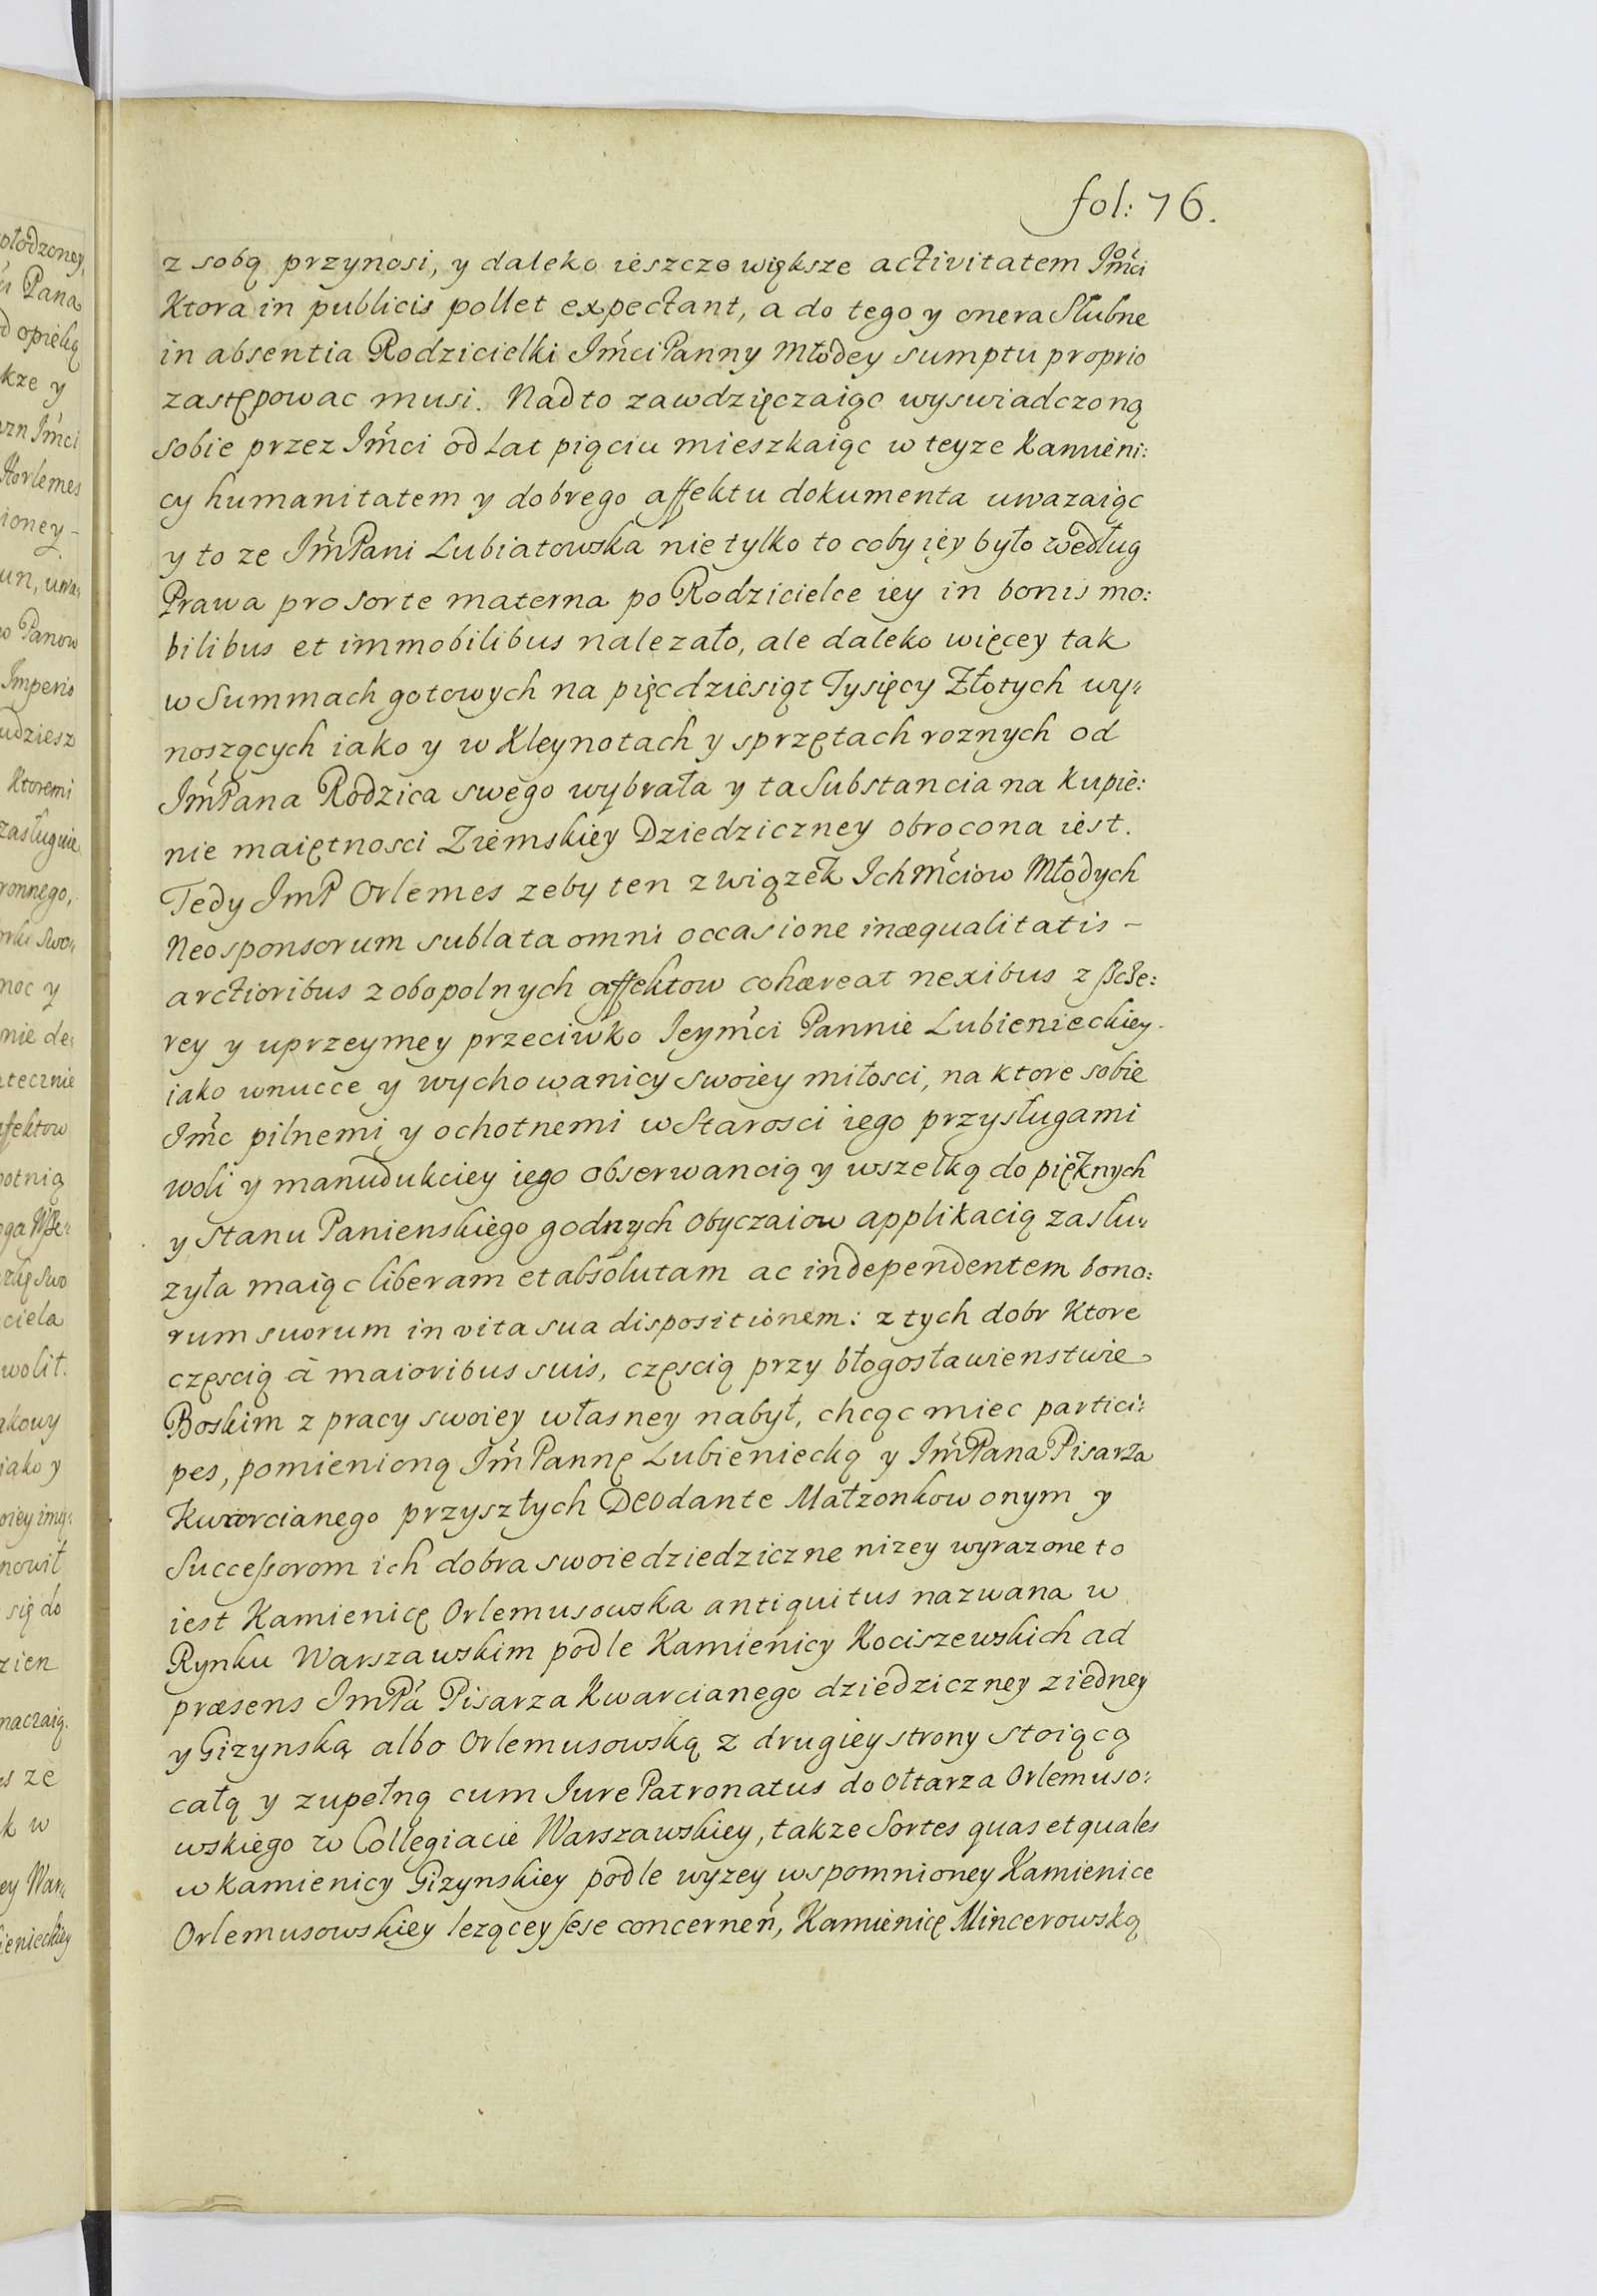 fol: 76.
z sobą przynosi, y daleko ieszcze większe activitatem Jm̃ci
Ktora in publicis pollet expectant, a do tego y onera Slubne
in absentia Rodzicielki Jm̃ci Panny Młodey sumptu proprio
zastępowac musi. Nadto zawdzięczaiąc wyswiadczoną
sobie przez Jm̃ci od Lat piąciu mieszkaiąc w teyze Kamieni:
cy humanitatem y dobrego affektu dokumenta uwazaiąc
y to ze Jm̃Pani Lubiatowska nie tylko to coby iey było według
Prawa pro sorte materna po Rodzicielce iey in bonis mo:
bilibus et immobilibus nalezało, ale daleko więcey tak
w Summach gotowych na pięcdziesiąt Tysięcy Złotych wy:
noszących iako y w Kleynotach y sprzętach roznych od
Jm̃Pana Rodzica swego wybrała y ta Substancia na Kupie:
nie maiętnosci Ziemskiey Dziedziczney obrocona iest.
Tedy JmP Orlemes zeby ten związek Ichm̃ciow Młodych
Neosponsorum sublata omni occasione inæqualitatis –
arctioribus z obopolnych affektow cohæreat nexibus z szcze:
rey y uprzeymey przeciwko Jeym̃ci Pannie Lubienieckiey
iako wnucce y wychowanicy swoiey miłosci, na ktore sobie
Jm̃c pilnemi y ochotnemi w Starosci iego przysługami
woli y manudukciey iego obserwancią y wszelką do pięknych
y stanu Panienskiego godnych obyczaiow applikacią zasłu:
zyła maiąc liberam et absolutam ac independentem bono:
rum suorum in vita sua dispositionem: z tych dobr Ktore
częscią à maioribus suis, częscią przy błogosławienstwie
Boskim z pracy swoiey własney nabył, chcąc miec partici:
pes, pomienioną Jm̃Pannę Lubieniecką y Jm̃Pana Pisarza
Kwarcianego przyszłych Deo dante Małzonkow onym y
Successorom ich dobra swoie dziedziczne nizey wyrazone to
iest Kamienicę Orlemusowska antiquitus nazwana w
Rynku Warszawskim podle Kamienicy Kociszewskich ad
præsens JmPã Pisarza Kwarcianego dziedziczney z iedney
y Gizynską albo Orlemusowską z drugiey strony stoiącą
całą y zupełną cum Jure Patronatus do Ołtarza Orlemuso:
wskiego w Collegiacie Warszawskiey, takze Sortes quas et quales
w kamienicy Gizynskiey podle wyzey wspomnioney Kamienice
Orlemusowskiey lezącey sese concerneñ, Kamienicę Mincerowską